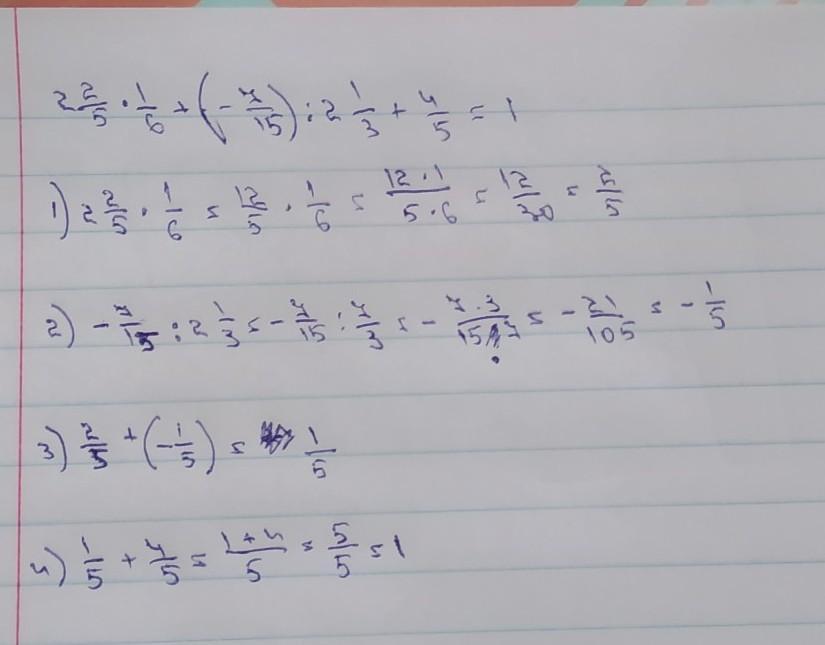 2 2/5 · 1/6 + (- 7/15) : 2 1/3 + 4/5 = 1
1) 2 2/5 · 1/6 = 12/5 · 1/6 = 12·1/5·6 = 12/30 = 2/5
2) - 7/15 : 2 1/3 = - 7/15 : 7/3 = - 7·3/15·7 = - 21/105 = - 1/5
3) 2/5 + (- 1/5) = 1/5
4) 1/5 + 4/5 = 1+4/5 = 5/5 = 1